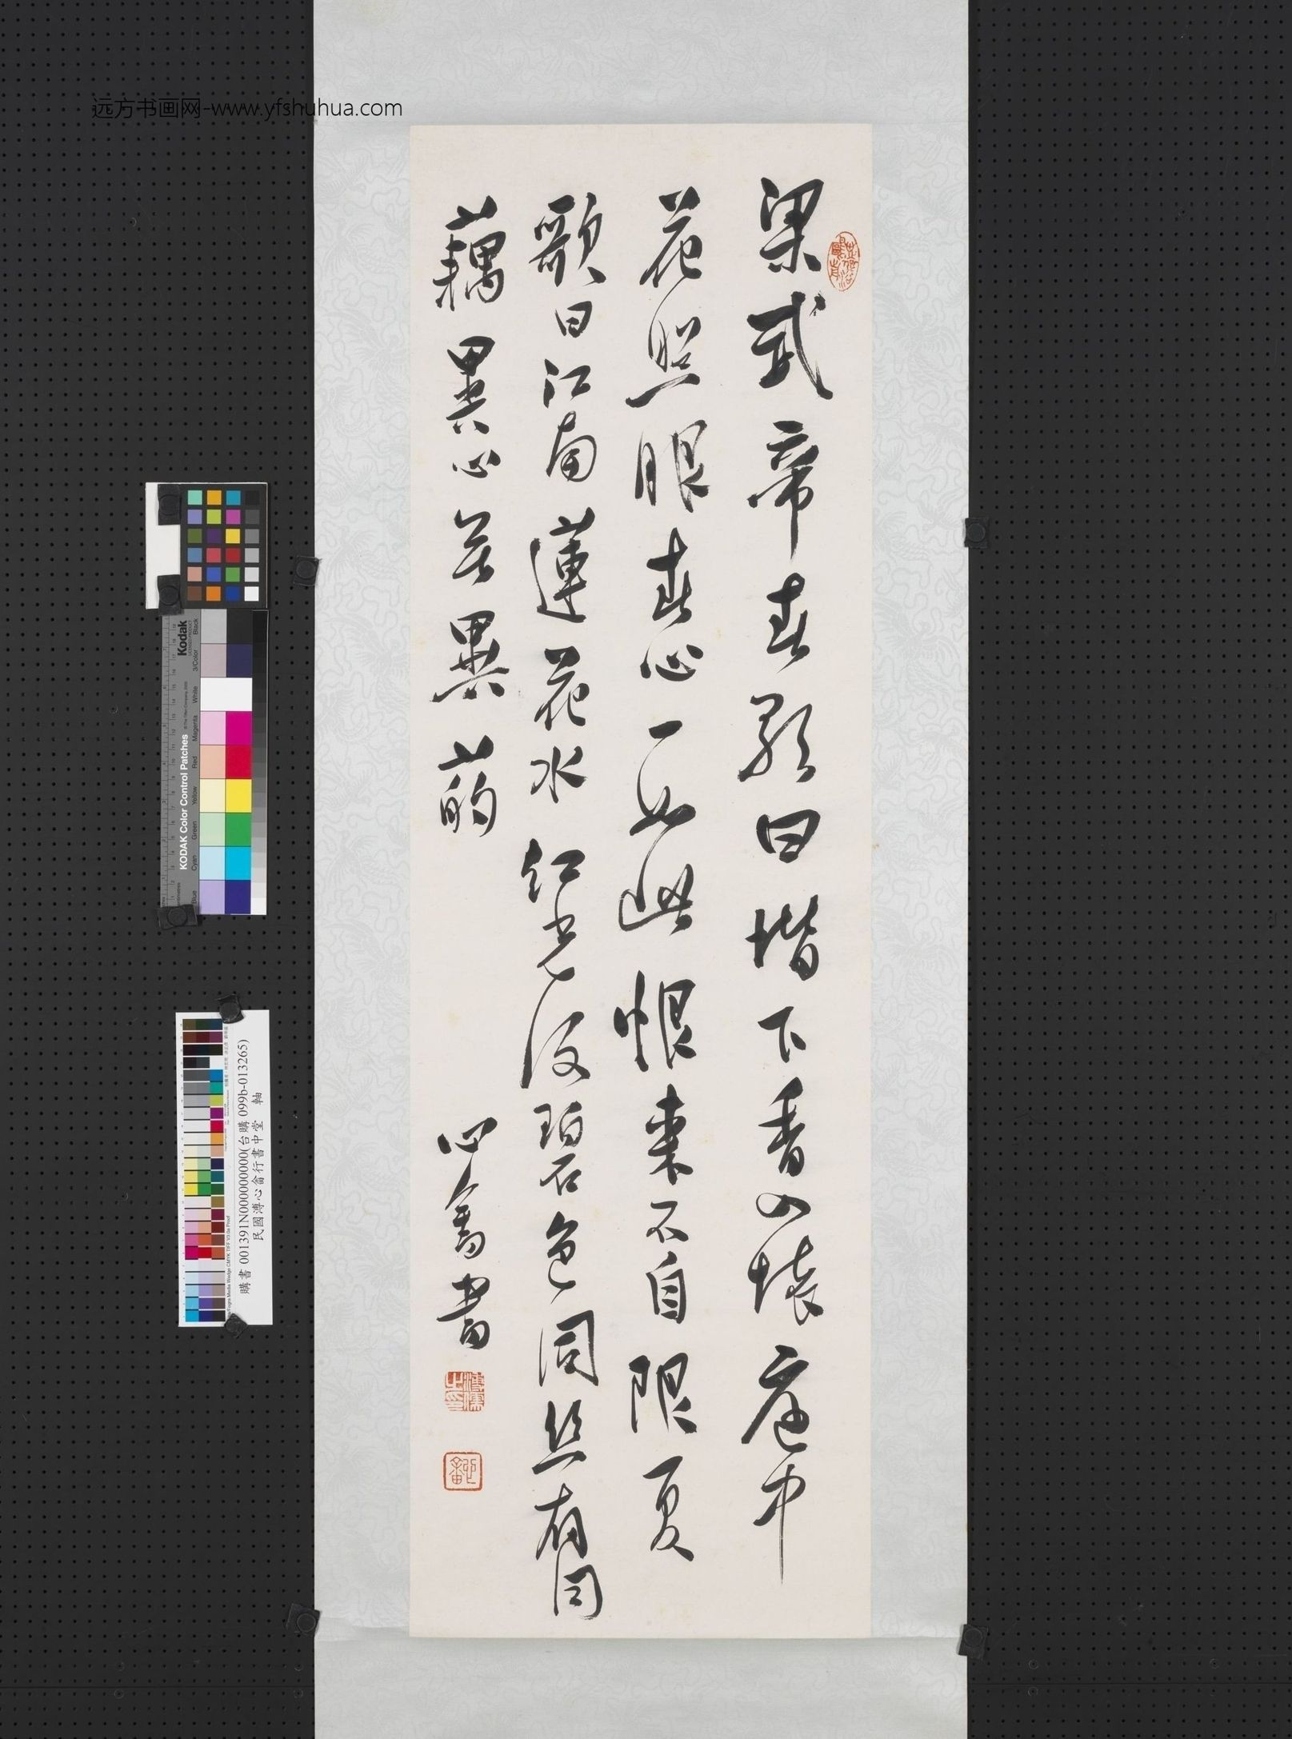 远方书画网-www.yfshuhua.com
梁武帝春歌曰堦下香入懷庭中
花照眼春心一如此恨来不自限夏
歌曰江南蓮花水紅光復碧色同絲有同
藕異心無異菂
心畬書
溥儒之印
Kodak
KODAK Color Control Patches
購書 001391N000000000(台購 099b-013265)
民國溥心畬行書中堂 軸